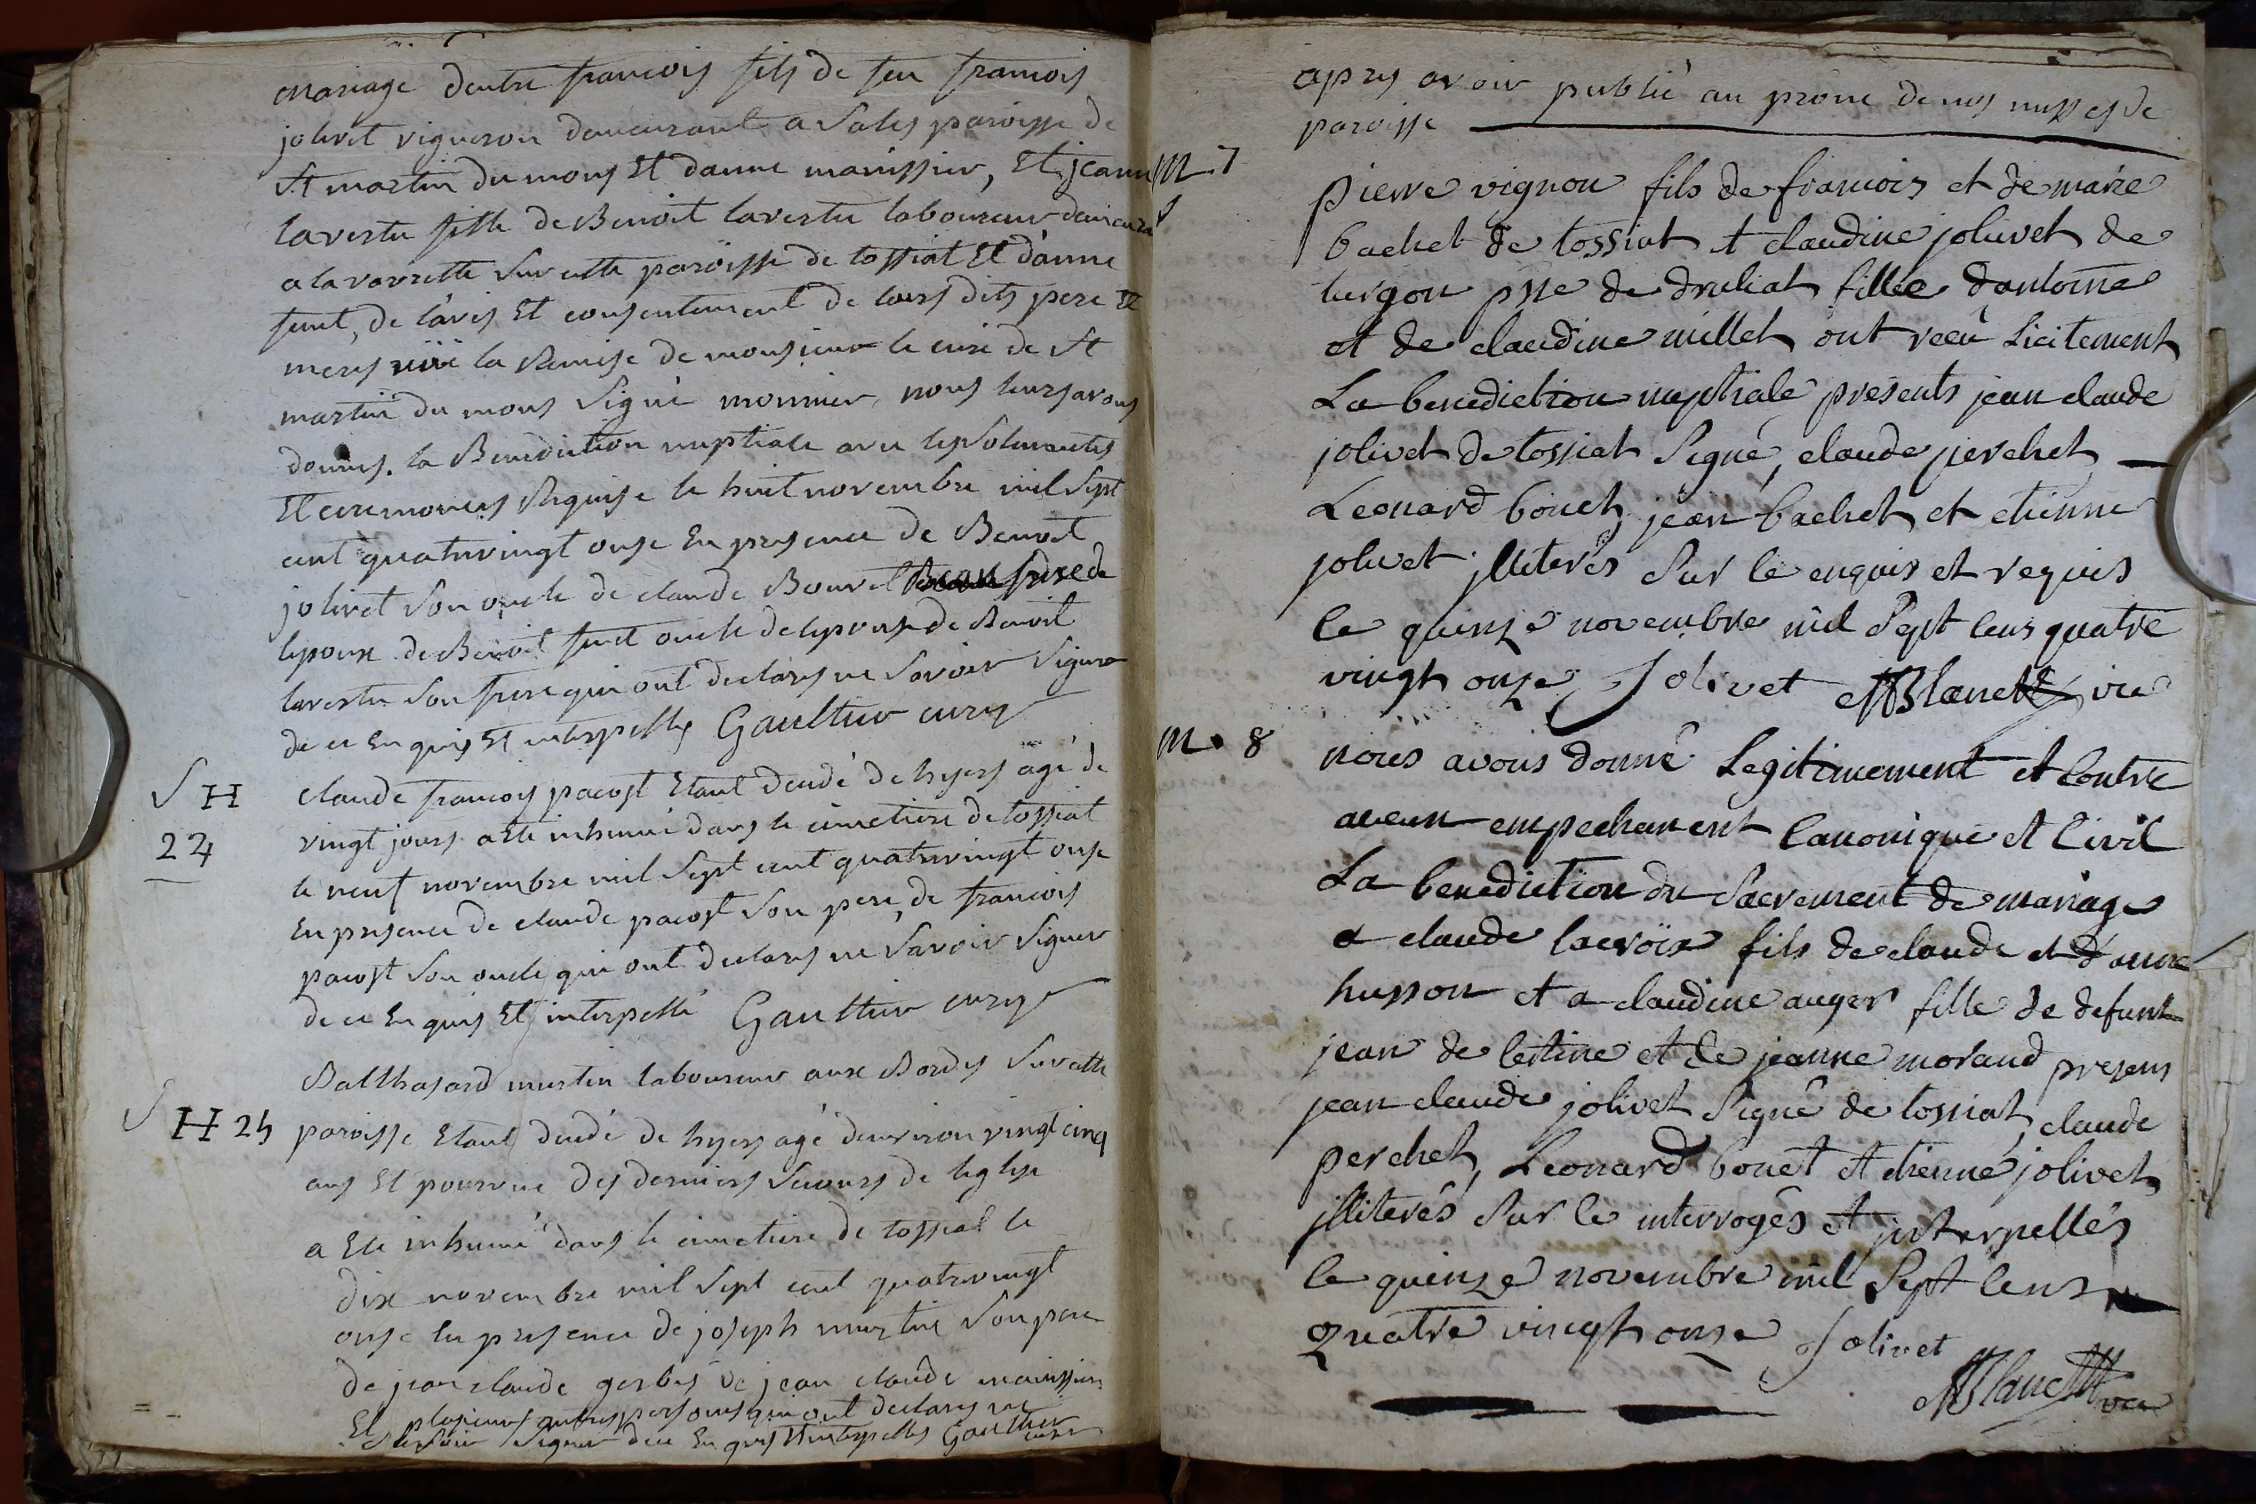 mariage dentre francois fils de feu francois
jolivet vigneron demeurant a Sales paroisse de
St martin du mons Et danne manissier, Et jeanne
lavestu fille de Benoit lavestu laboureur demeura
a la vavrette sur cette paroisse de tossiat Et d'anne
furet, de l'avis Et consentement de leurs dits pere Et
meres vüe la Remise de monsieur le curé de St
martin du mons Signé monnier, nous leurs avons
donnes la Benediction nuptiale avec les Solemnites
Et ceremonies Requise le huit novembre mil Sept
cent quatrevingt onse En presence de Benoit
jolivet Son oncle de claude Bouvet frere de
lepoux de Benoit furet oncle de lepouse de Benoit
lavestu Son frere qui ont declares ne Savoir Signer
de ce Enquis Et interpelles Gaultier curé
S H
24
claude francois pacost Etant decedé de hyers agé de
vingt jours a Eté inhumé dans le cimetiere de tossiat
le neuf novembre mil Sept cent quatrevingt onse
En presence de claude pacost Son pere, de francois
pacost Son oncle qui ont declares ne Savoir Signer
de ce Enquis Et interpellé Gaultier curé
Balthasard murtin laboureur aux Bordes Sur cette
S H 25 paroisse Etant decedé de hyers agé denviron vingt cinq
ans Et pourvue des derniers Secours de leglise
a Eté inhumé dans le cimetiere de tossiat le
dix novembre mil Sept cent quatrevingt
onse En presence de joseph murtin Son pere
de jean claude gerbes de jean claude manissier
Et plusieurs autres personnes qui ont declares ne
Savoir Signer de ce Enquis Et interpelles Gaultier curé
apres avoir publié au prône de nos messes de
paroisse
M. 7
S
pierre vignon fils de francois et de marie
bachet de tossiat et claudine jolivet de
turgon psse de druliat fille d'antoine
et de claudine millet ont recu Licitement
La benediction nuptiale présents jean claude
jolivet de tossiat Signé, claude perchet
Leonard bouet, jean bachet et etienne
jolivet jlliterés Sur ce enquis et requis
le quinze novembre mil Sept cens quatre
vingt onze Jolivet Blanc vic
M. 8 nous avons donné Legitimement et Contre
aucun empechement Canonique et Civil
La benediction du Sacrement de mariage
a claude lacroix fils de claude et d'anne
husson et a claudine auger fille de defunt
jean de certine et de jeanne morand presens
jean claude jolivet Signé de tossiat, claude
perchet, Leonard bouet et etienne jolivet
jlliterés Sur ce interrogés et jnterpellés
le quinze novembre mil Sept cens
quatre vingt onze Jolivet
Blanc vic